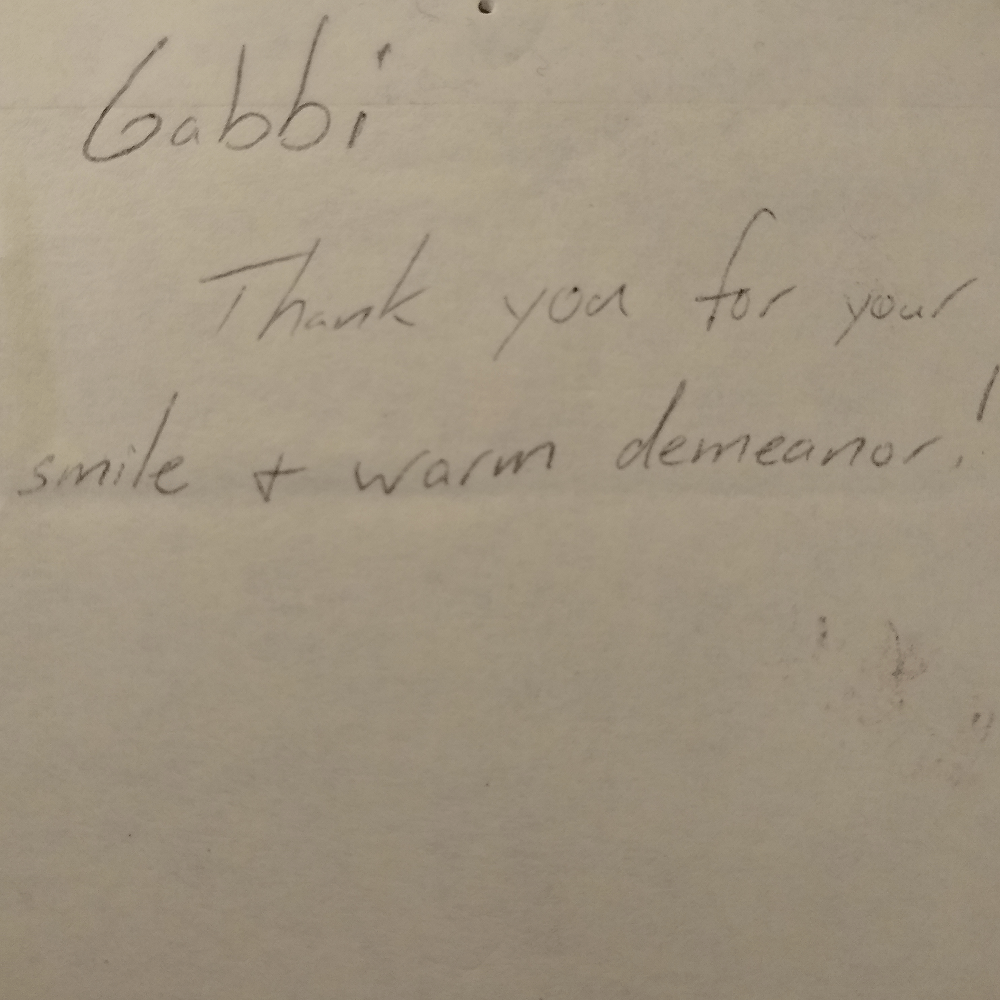 Gabbi
Thank you for your
smile + warm demeanor!